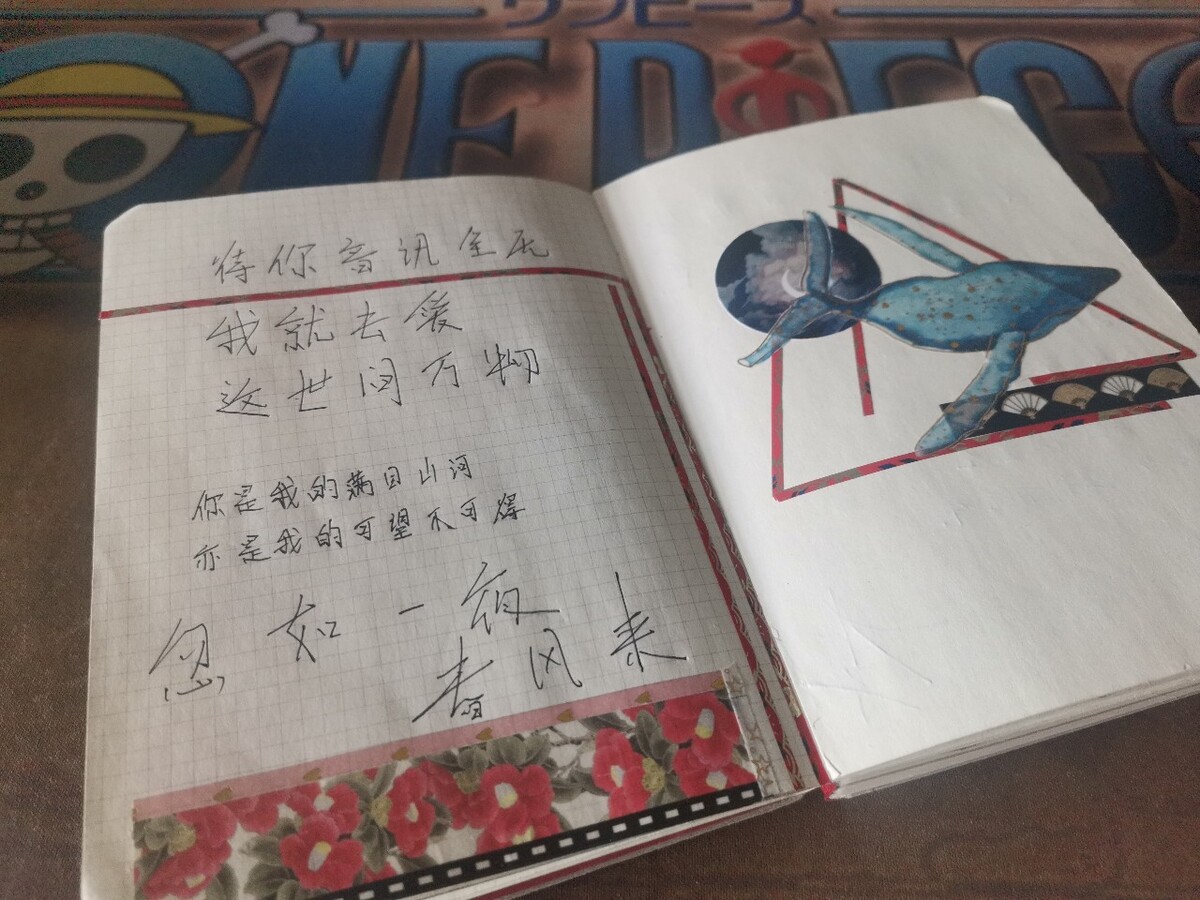 ワンピース
ONE PIECE
待你音讯全无
我就去爱
这世间万物
你是我的满目山河
亦是我的可望不可得
忽如一夜
春风来